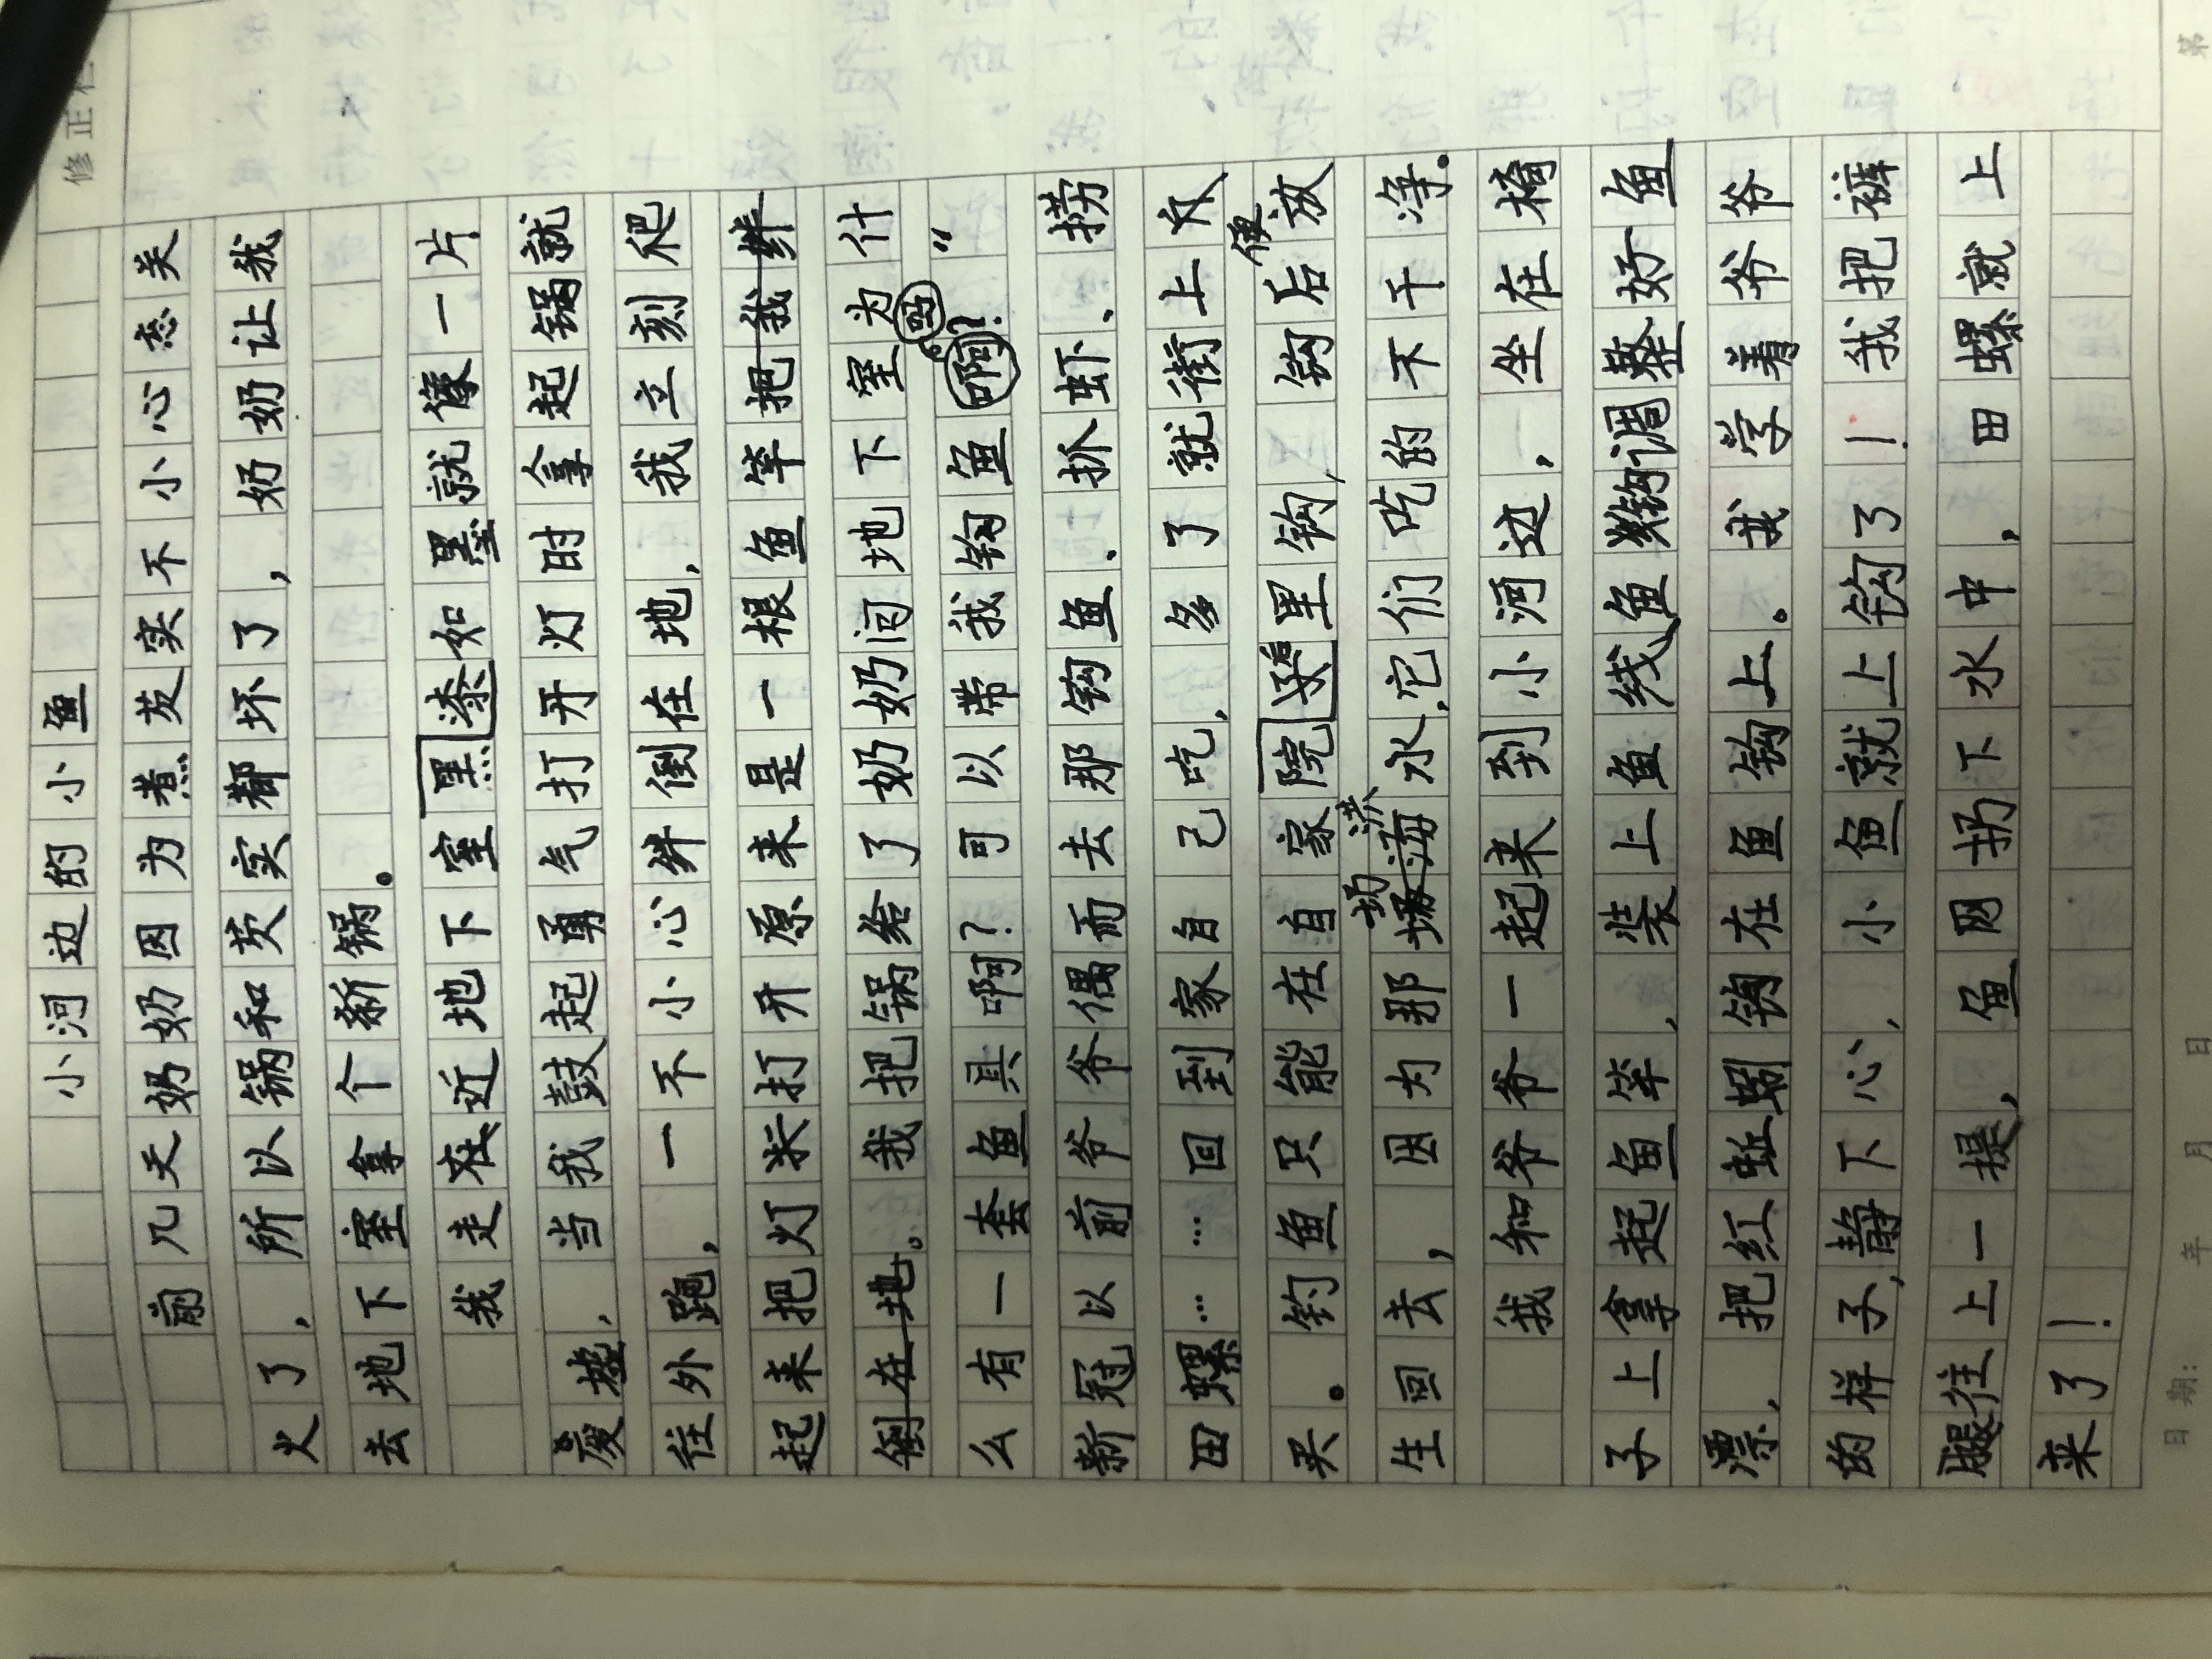 修正栏
小河边的小鱼
前几天奶奶因为煮芡实不小心忘关
火了，所以锅和芡实都坏了，奶奶让我
去地下室拿个新锅。
我走在近地下室黑漆如墨就像一片
废墟，当我鼓起勇气打开灯时拿起锅就
往外跑，一不小心绊倒在地，我立刻爬
起来把灯打开原来是一根鱼竿把我绊
倒在地。我把锅给了奶奶问地下室为什
么有一套鱼具啊？可以带我钩鱼啊？吗”
新冠以前爷爷偶而去那钩鱼、抓虾、捞
田螺……回到家自己吃，多了就街上大
买。钓鱼只能在自家院子里钩，钩后便放
生回去，因为那场洪水，它们吃的不干净。
我和爷爷一起来到小河边，坐在椅
子上拿起鱼竿，装上鱼线、鱼钩调整好鱼
漂，把红蚯蚓钩在鱼钩上。我学着爷爷
的样子，静下心，小鱼就上钩了！我把裤
腿往上一提，鱼网扔下水中，田螺就上
来了！
日期： 年 月 日 第